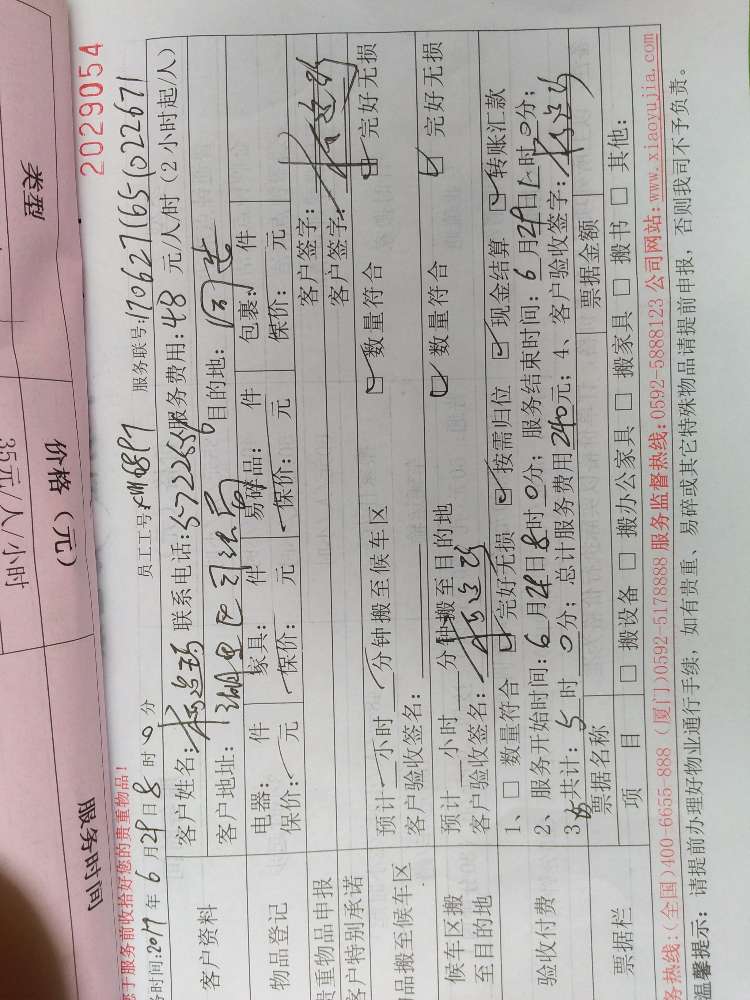 2029054
您于服务前收拾好您的贵重物品!
务时间:2017年6月29日8时0分 员工工号: 服务联号:1706271651022671
客户资料
客户姓名: 联系电话:5722556 服务费用:48元/人/时(2小时起/人)
客户地址:湖里区司法局 目的地:同址
物品登记
电器: 件 家具: 件 易碎品: 件 包裹: 件
保价: 元 保价: 元 保价: 元 保价: 元
贵重物品申报 客户签字:
客户特别承诺 客户签字:
物品搬至候车区
预计 小时 分钟搬至候车区 数量符合 完好无损
客户验收签名:
候车区搬至目的地
预计 小时 分钟搬至目的地 数量符合 完好无损
客户验收签名:
验收付费
1、□ 数量符合 完好无损 按需归位 现金结算 转账汇款
2、服务开始时间:6月29日8时0分; 服务结束时间:6月29日 时0分;
3、共计:5时0分; 总计服务费用240元; 4、客户验收签字:
票据栏
票据名称 票据金额
项目 □ 搬设备 □ 搬办公家具 □ 搬家具 □ 搬书 □ 其他:
务热线:(全国)400-6655-888 (厦门)0592-5178888 服务监督热线:0592-5888123 公司网站:www.xiaoyujia.com
温馨提示: 请提前办理好物业通行手续, 如有贵重、易碎或其它特殊物品请提前申报, 否则我司不予负责。
类型
价格(元)
35元/人/小时
服务时间